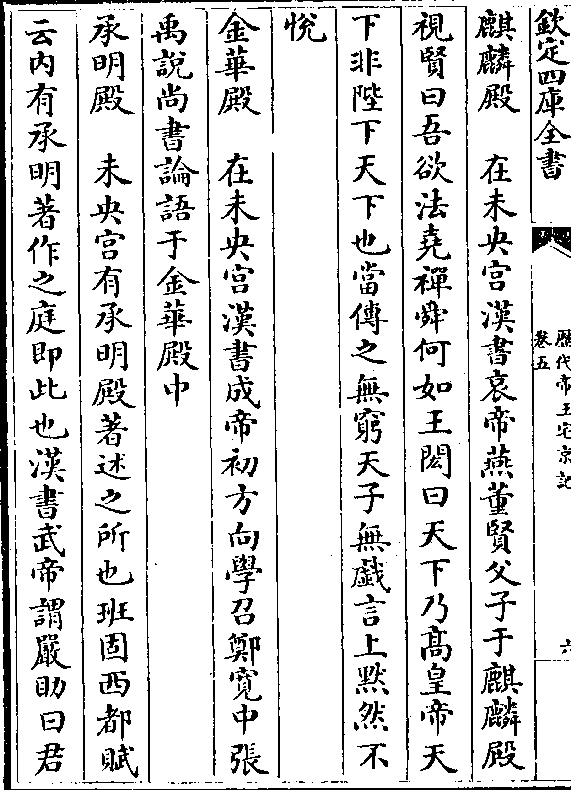 欽定四庫全書
歷代帝王宅京記
卷五
六
麒麟殿　在未央宮漢書哀帝燕董賢父子于麒麟殿
視賢曰吾欲法堯禪舜何如王閎曰天下乃髙皇帝天
下非陛下天下也當傳之無窮天子無戱言上黙然不
悅
金華殿　在未央宮漢書成帝初方向學召鄭寛中張
禹說尚書論語于金華殿中
承明殿　未央宮有承明殿著述之所也班固西都賦
云内有承明著作之庭即此也漢書武帝謂嚴助曰君